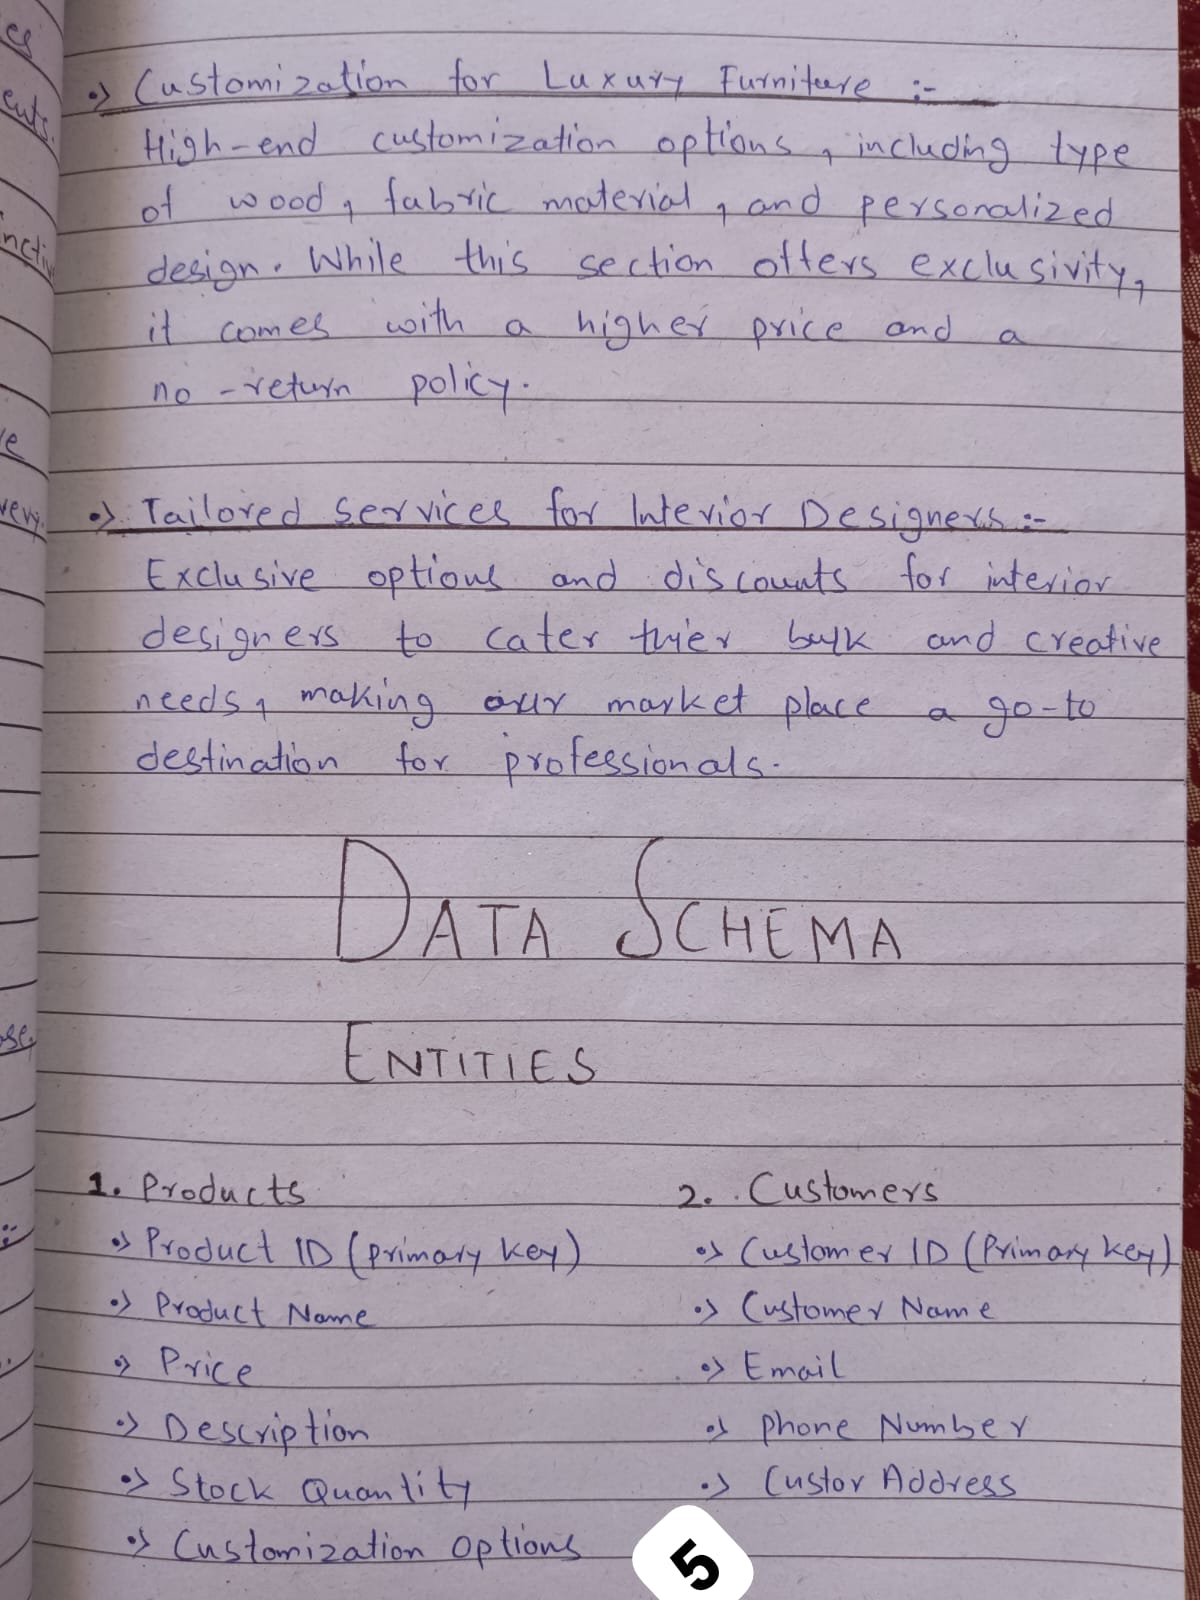 •) Customization for Luxury Furniture :-
High-end customization options, including type
of wood, fabric material, and personalized
design. While this section offers exclusivity,
it comes with a higher price and a
no-return policy.
•) Tailored Services for Interior Designers :-
Exclusive options and discounts for interior
designers to cater thier bulk and creative
needs, making our market place a go-to
destination for professionals.
DATA SCHEMA
ENTITIES
1. Products
•) Product ID (primary key)
•) Product Name
•) Price
•) Description
•) Stock Quantity
•) Customization Options
2. Customers
•) Customer ID (Primary key)
•) Customer Name
•) Email
•) Phone Number
•) Custor Address
5